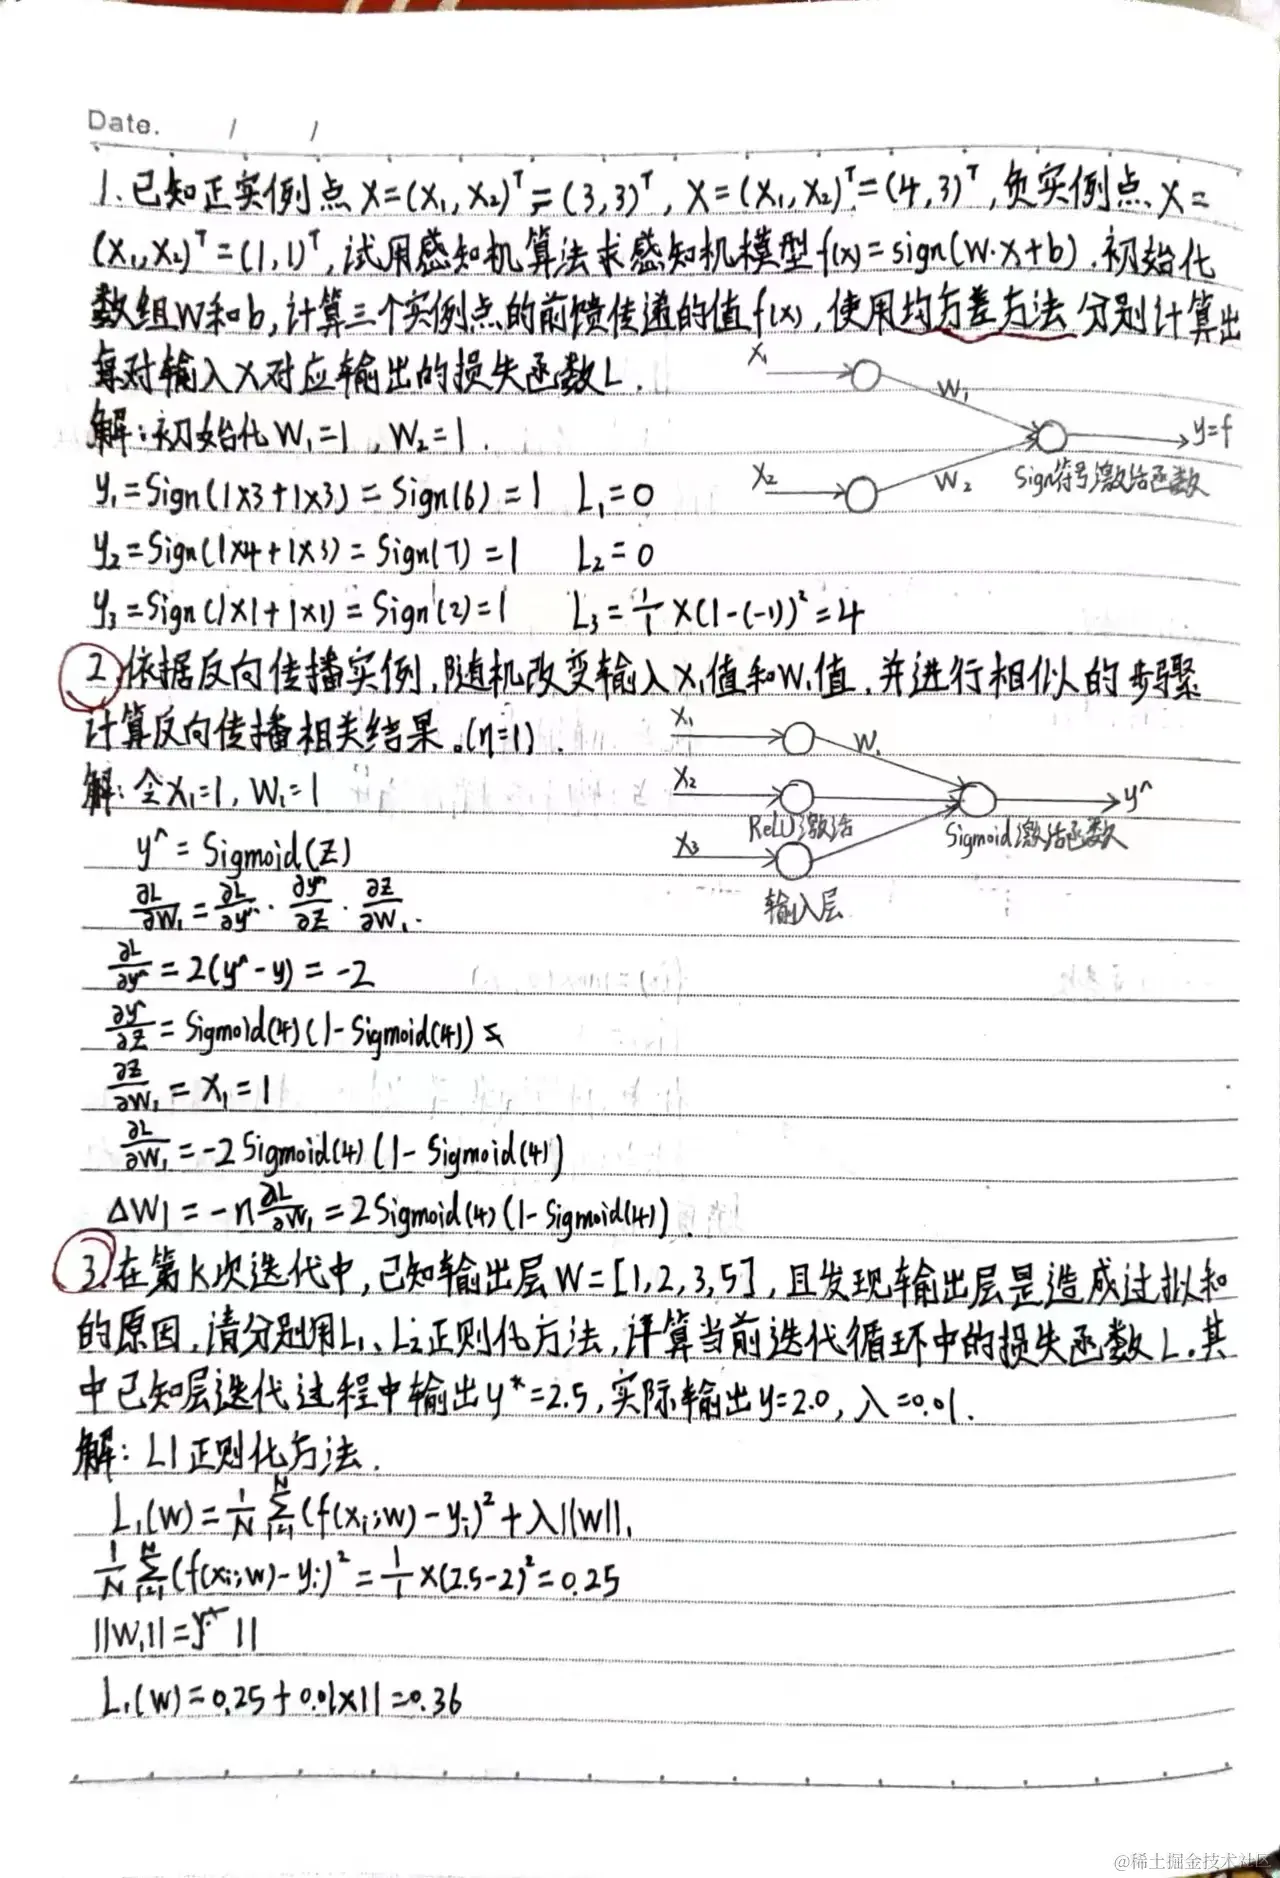 Date. / /
1.已知正实例点 X=(X₁,X₂)ᵀ=(3,3)ᵀ, X=(X₁,X₂)ᵀ=(4,3)ᵀ,负实例点 X=
(X₁,X₂)ᵀ=(1,1)ᵀ,试用感知机算法求感知机模型f(x)=sign(W·X+b).初始化
数组W和b,计算三个实例点的前馈传递的值f(x),使用均方差方法分别计算出
每对输入X对应输出的损失函数L.
X₁
W₁
X₂
W₂
y=f
Sign符号激活函数
解:初始化W₁=1,W₂=1.
y₁=Sign(1×3+1×3)=Sign(6)=1 L₁=0
y₂=Sign(1×4+1×3)=Sign(7)=1 L₂=0
y₃=Sign(1×1+1×1)=Sign(2)=1 L₃=1/1×(1-(-1))²=4
2.依据反向传播实例,随机改变输入X₁值和W₁值,并进行相似的步骤
计算反向传播相关结果。(η=1).
X₁
W₁
X₂
ReLU激活
X₃
输入层
y^
Sigmoid激活函数
解:令X₁=1,W₁=1
y^=Sigmoid(Z)
∂L/∂W₁=∂L/∂y^·∂y^/∂Z·∂Z/∂W₁.
∂L/∂y^=2(y^-y)=-2
∂y^/∂Z=Sigmoid(4)(1-Sigmoid(4))
∂Z/∂W₁=X₁=1
∂L/∂W₁=-2Sigmoid(4)(1-Sigmoid(4))
ΔW1=-η∂L/∂W₁=2Sigmoid(4)(1-Sigmoid(4)).
3.在第K次迭代中,已知输出层W=[1,2,3,5],且发现输出层是造成过拟和
的原因,请分别用L₁、L₂正则化方法,计算当前迭代循环中的损失函数L.其
中已知层迭代过程中输出y*=2.5,实际输出y=2.0,λ=0.01.
解:L1正则化方法.
L₁(W)=1/N Σᵢ₌₁ᴺ(f(xᵢ;w)-yᵢ)²+λ||W||₁
1/N Σᵢ₌₁ᴺ(f(xᵢ;w)-yᵢ)²=1/1×(2.5-2)²=0.25
||W₁||= 11
L₁(W)=0.25+0.01×11=0.36
@稀土掘金技术社区